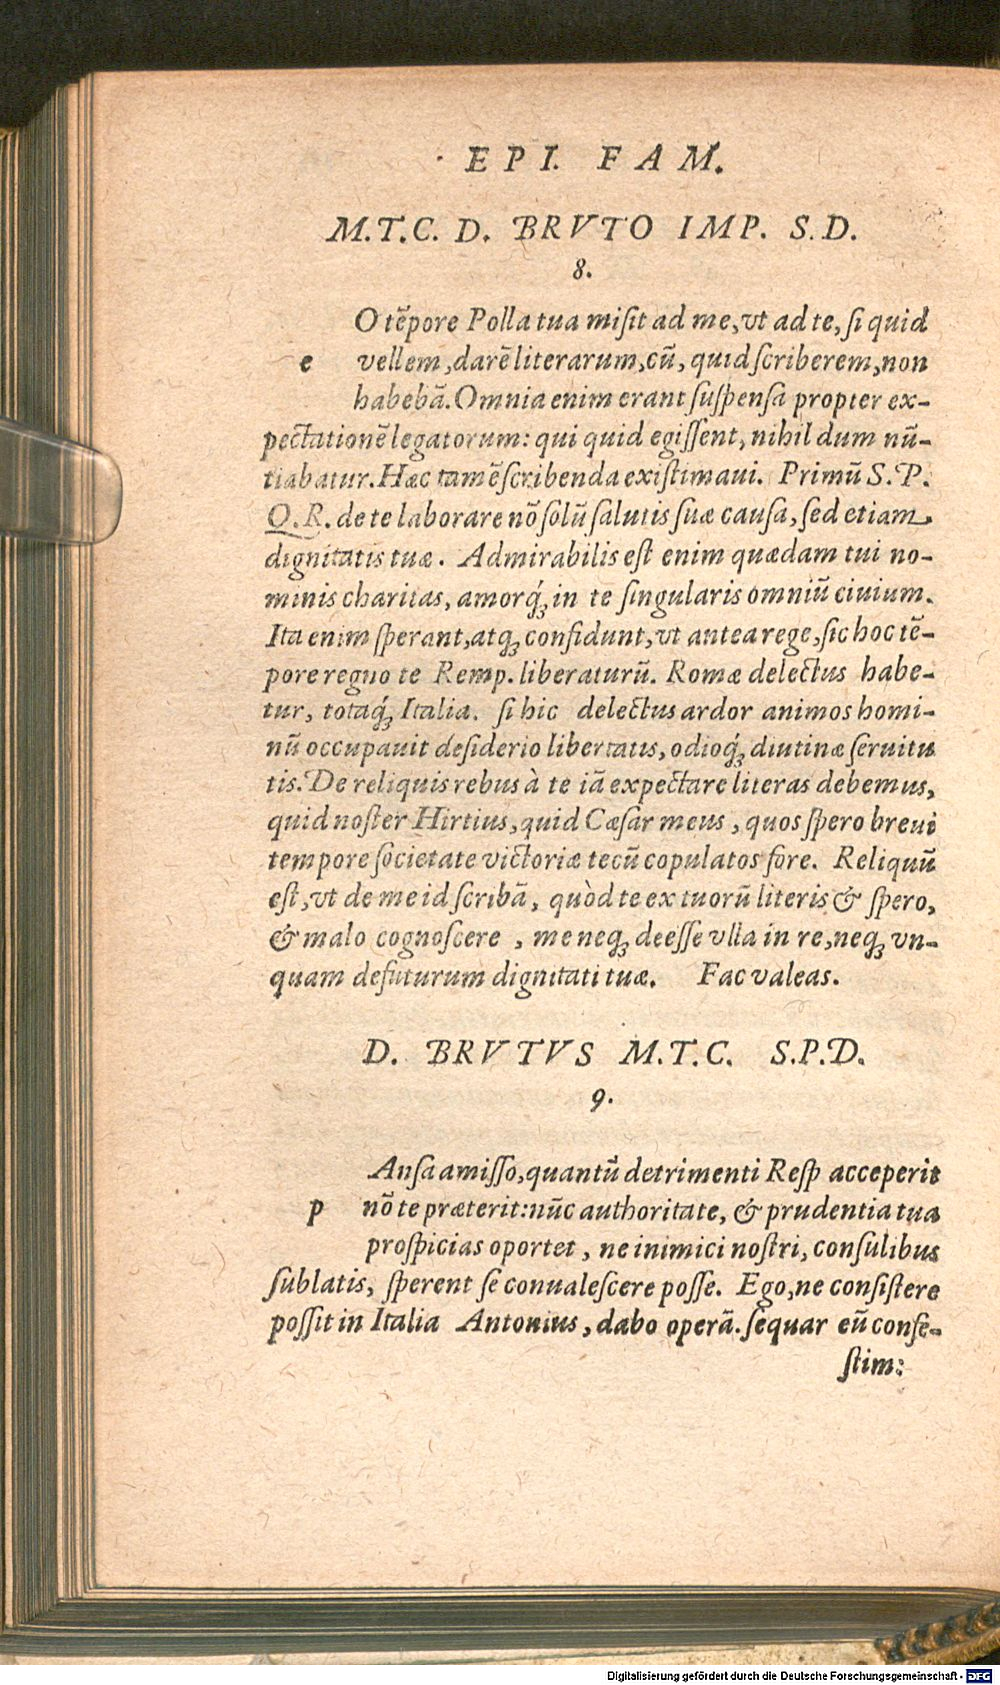 EPI. FAM.
M.T.C. D. BRVTO IMP. S.D.
8.
O tẽpore Polla tua misit ad me, vt ad te, si quid
e vellem, darẽ literarum, cũ, quid scriberem, non
habebã. Omnia enim erant suspensa propter ex-
pectationẽ legatorum: qui quid egissent, nihil dum nũ-
tiabatur. Hæc tamẽ scribenda existimaui. Primũ S. P.
Q. R. de te laborare nõ solũ salutis suæ causa, sed etiam
dignitatis tuæ. Admirabilis est enim quædam tui no-
minis charitas, amorq́ꝫ in te singularis omniũ ciuium.
Ita enim sperant, atqꝫ confidunt, vt antea rege, sic hoc tẽ-
pore regno te Remp. liberaturũ. Romæ delectus habe-
tur, totaq́ꝫ Italia. si hic delectus ardor animos homi-
nũ occupauit desiderio libertatis, odioq́ꝫ diutinæ seruitu
tis. De reliquis rebus à te iã expectare literas debemus,
quid noster Hirtius, quid Cæsar meus, quos spero breui
tempore societate victoriæ tecũ copulatos fore. Reliquũ
est, vt de me id scribã, quòd te ex tuorũ literis & spero,
& malo cognoscere, me neqꝫ deesse vlla in re, neqꝫ vn-
quam defuturum dignitati tuæ. Fac valeas.
D. BRVTVS M.T.C. S.P.D.
9.
Ansa amisso, quantũ detrimenti Resp acceperit
p nõ te præterit: nũc authoritate, & prudentia tua
prospicias oportet, ne inimici nostri, consulibus
sublatis, sperent se conualescere posse. Ego, ne consistere
possit in Italia Antonius, dabo operã. sequar eũ confe-
stim:
Digitalisierung gefördert durch die Deutsche Forschungsgemeinschaft - DFG